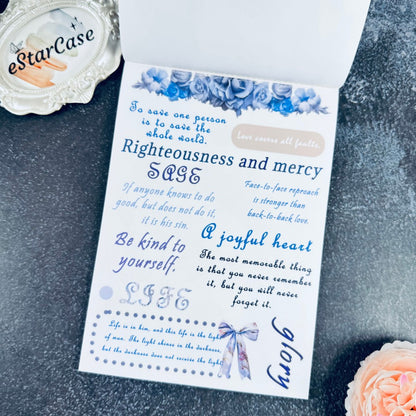 eStarCase
To save one person
is to save the
whole world.
Love covers all faults.
Righteousness and mercy
SAGE
If anyone knows to do
good, but does not do it,
it is his sin.
Face-to-face reproach
is stronger than
back-to-back love.
Be kind to
yourself.
A joyful heart
The most memorable thing
is that you never remember
it, but you will never
forget it.
LIFE
glory
Life is in him, and this life is the light
of man. The light shines in the darkness,
but the darkness does not receive the light.